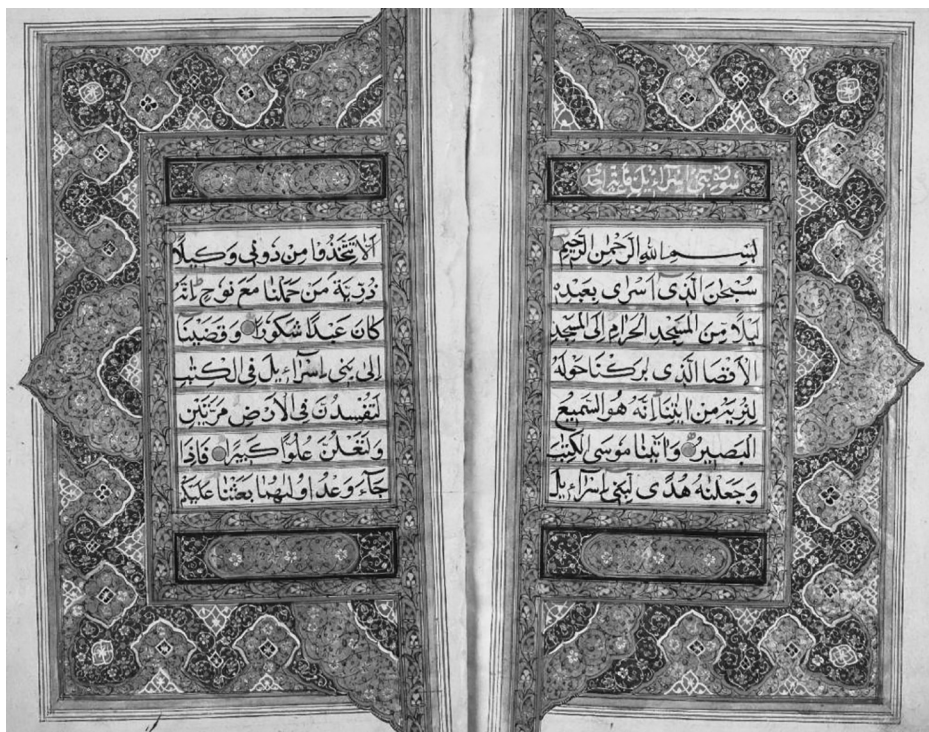 سورة بني اسرآءيل
بسم الله الرحمن الرحيم
سُبْحٰنَ الَّذِى اَسْرٰى بِعَبْدِهٖ
لَيْلًا مِنَ الْمَسْجِدِ الْحَرَامِ اِلَى الْمَسْجِدِ
الْاَقْصَا الَّذِى بٰرَكْنَا حَوْلَهٗ
لِنُرِيَهٗ مِنْ اٰيٰتِنَا اِنَّهٗ هُوَ السَّمِيعُ
الْبَصِيرُ وَاٰتَيْنَا مُوسَى الْكِتٰبَ
وَجَعَلْنٰهُ هُدًى لِبَنِى اِسْرَآءِيلَ
اَلَّا تَتَّخِذُوا مِنْ دُونِى وَكِيلًا
ذُرِّيَّةَ مَنْ حَمَلْنَا مَعَ نُوحٍ اِنَّهٗ
كَانَ عَبْدًا شَكُورًا وَقَضَيْنَا
اِلٰى بَنِى اِسْرَآءِيلَ فِى الْكِتٰبِ
لَتُفْسِدُنَّ فِى الْاَرْضِ مَرَّتَيْنِ
وَلَتَعْلُنَّ عُلُوًّا كَبِيرًا فَاِذَا
جَآءَ وَعْدُ اُولٰىهُمَا بَعَثْنَا عَلَيْكُمْ